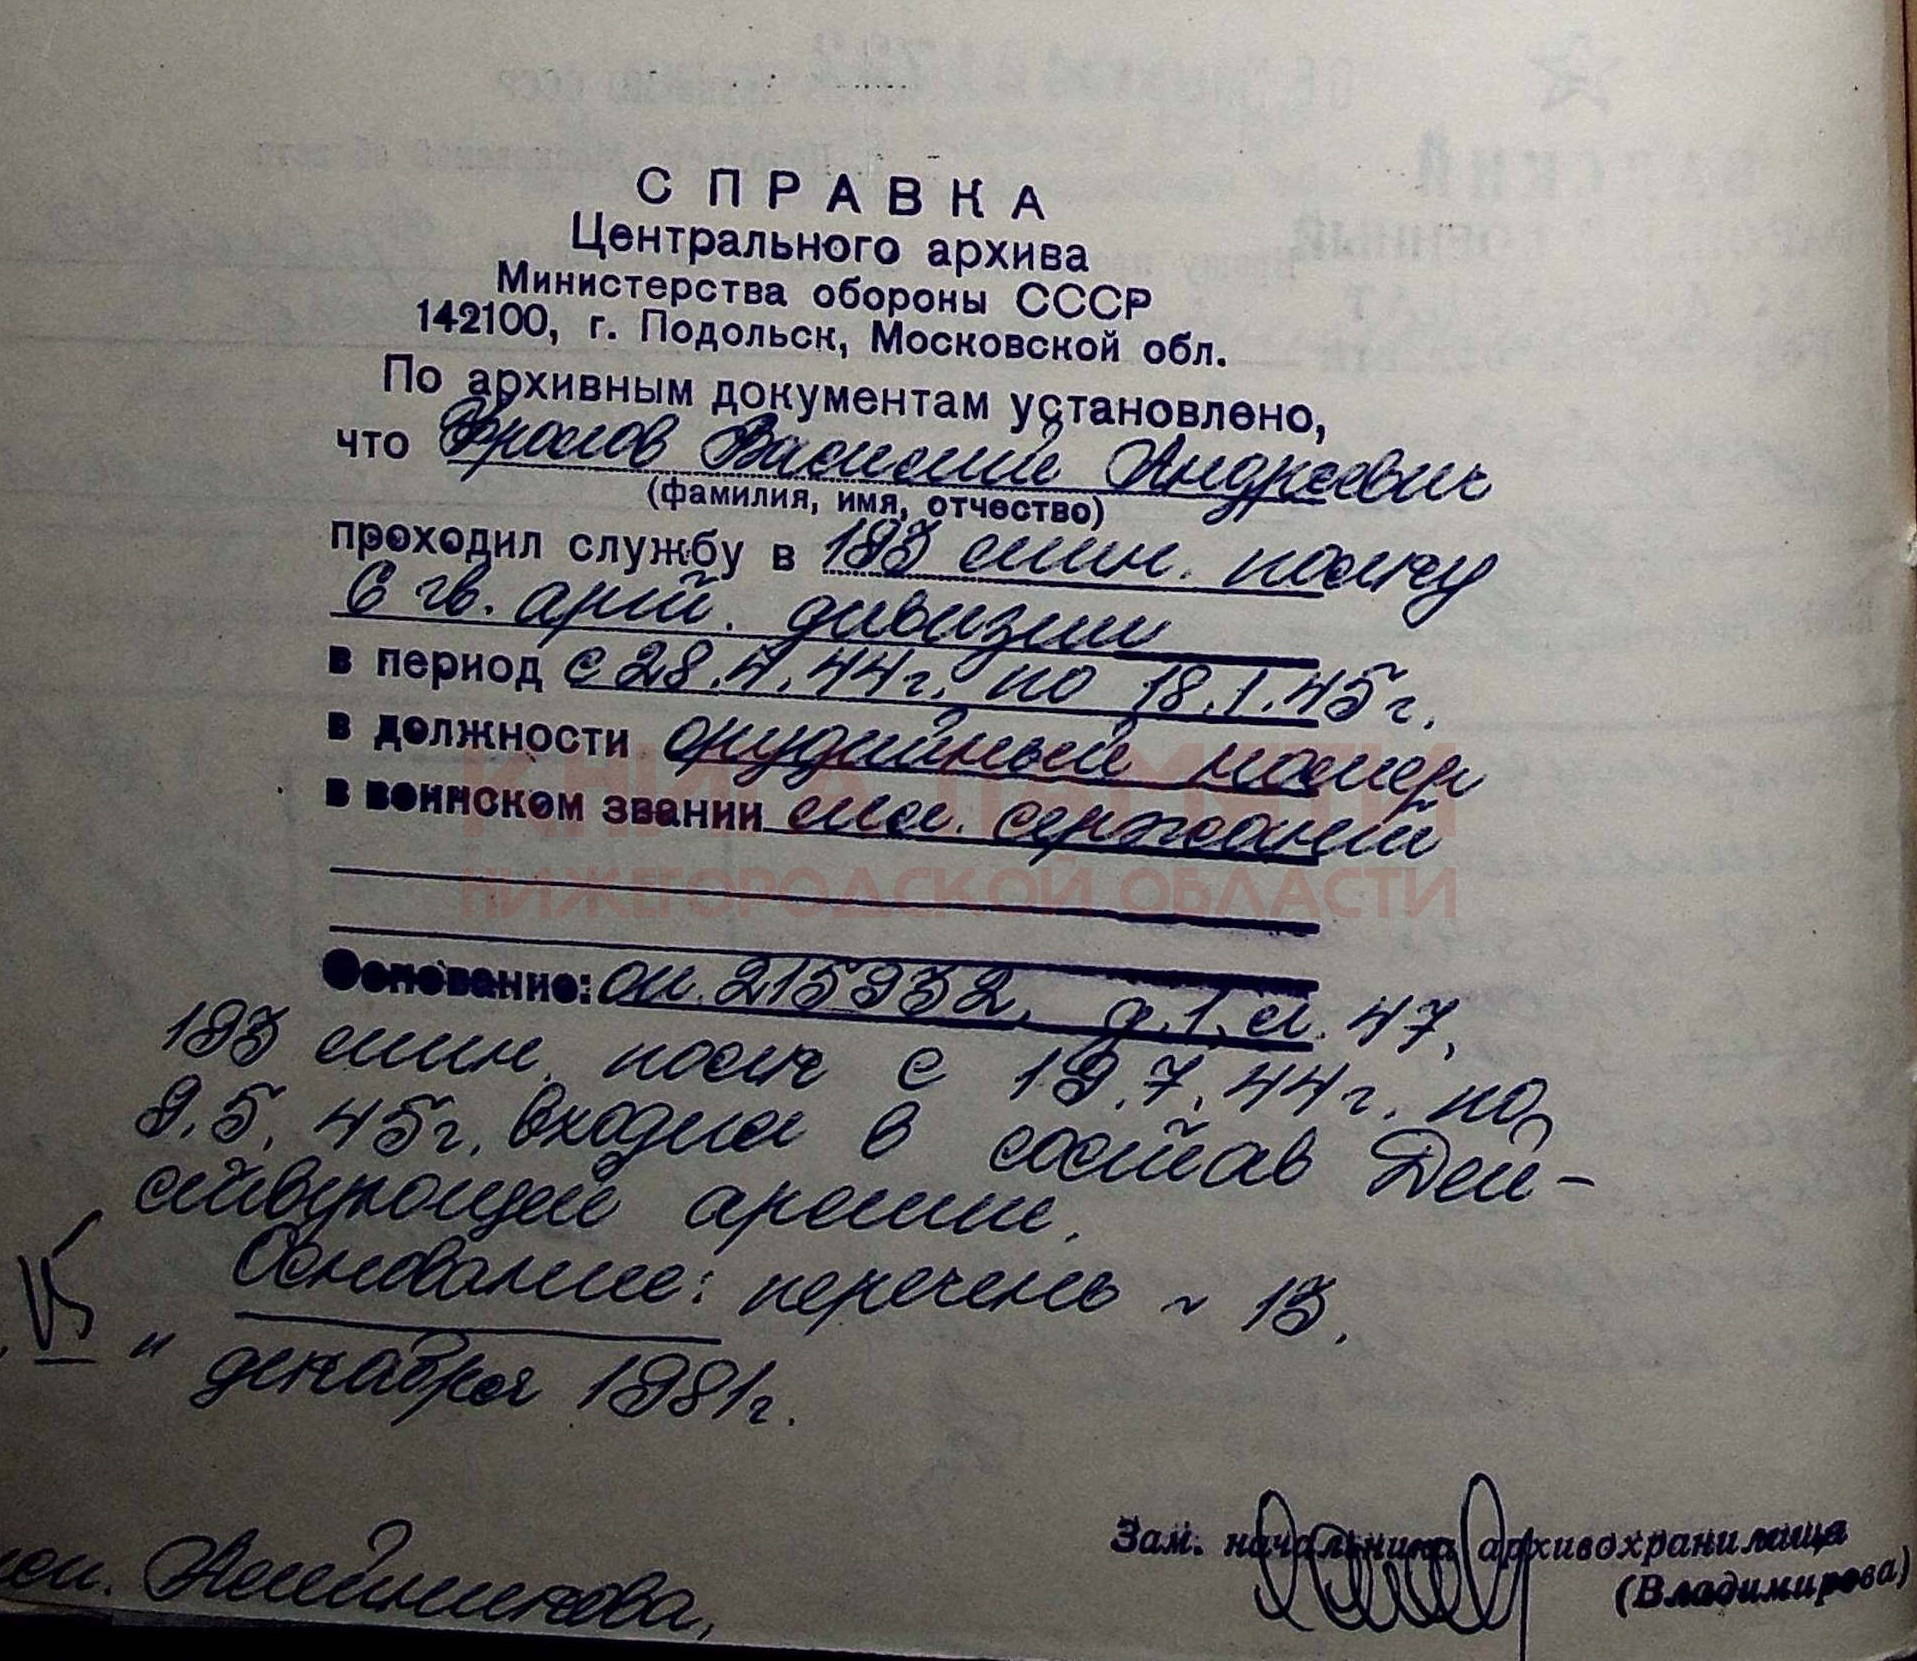 СПРАВКА
Центрального архива
Министерства обороны СССР
142100, г. Подольск, Московской обл.
По архивным документам установлено,
что Фролов Василий Андреевич
(фамилия, имя, отчество)
проходил службу в 193 мин. полку
6 гв. арт. дивизии
в период с 28.4.44г. по 18.1.45г.
в должности орудийный номер
в воинском звании мл. сержант
КНИГА ПАМЯТИ
НИЖЕГОРОДСКОЙ ОБЛАСТИ
Основание: оп. 215932, д.1, л. 47.
193 мин. полк с 19.7.44г. по
9.5.45г. входил в состав Дей-
ствующей армии.
Основание: перечень ~ 13.
15 " декабря 1981г.
Зам. начальника архивохранилища
(Владимирова)